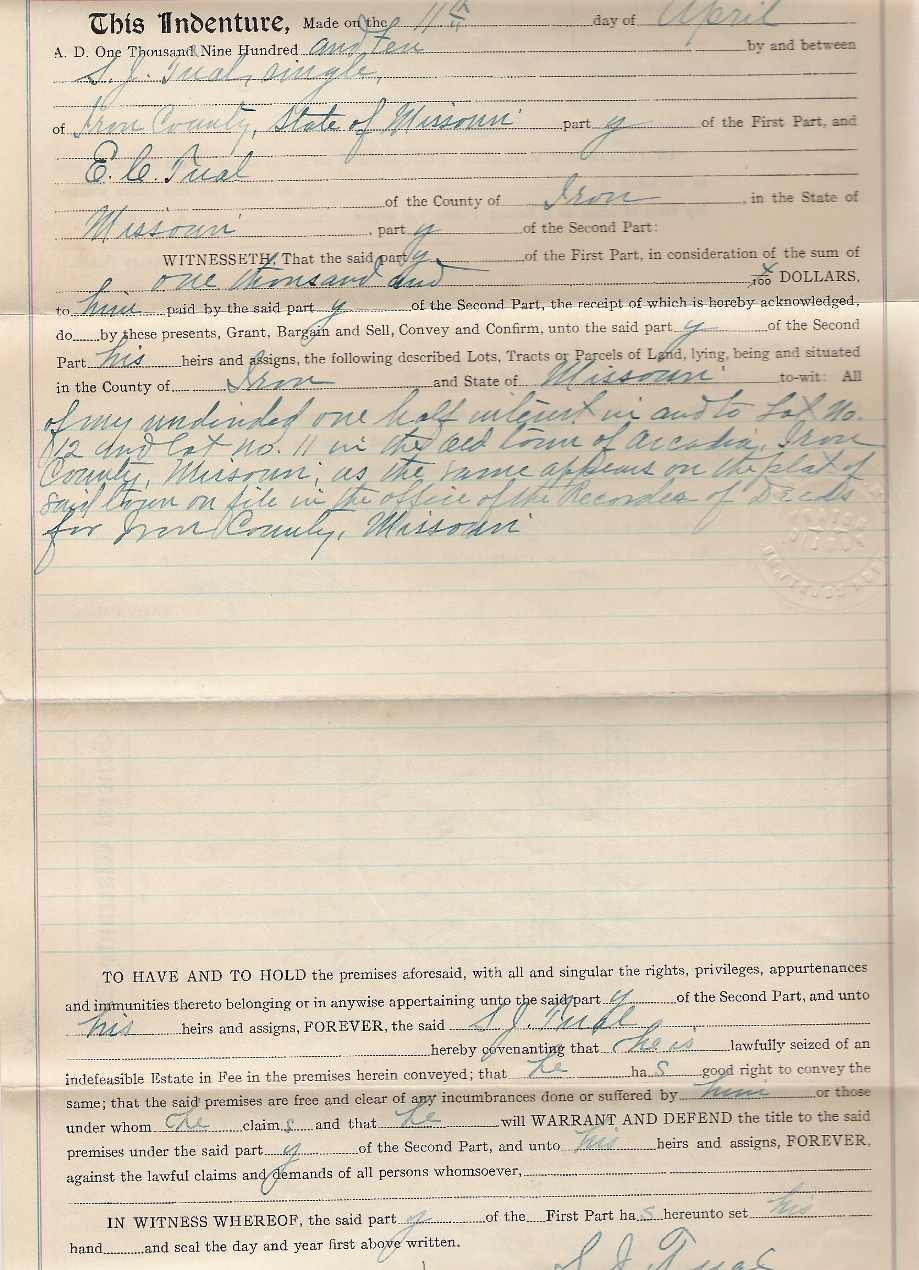 This Indenture, Made on the 11th day of April
A. D. One Thousand Nine Hundred and ten by and between
S. J. Tual, single,
of Iron County, State of Missouri part y of the First Part, and
E. C. Tual
of the County of Iron, in the State of
Missouri, part y of the Second Part:
WITNESSETH, That the said party of the First Part, in consideration of the sum of
one thousand and x/100 DOLLARS,
to him paid by the said part y of the Second Part, the receipt of which is hereby acknowledged,
do by these presents, Grant, Bargain and Sell, Convey and Confirm, unto the said part y of the Second
Part his heirs and assigns, the following described Lots, Tracts or Parcels of Land, lying, being and situated
in the County of Iron and State of Missouri to-wit: All
of my undivided one half interest in and to Lot No.
12 and Lot no. 11 in the old town of Arcadia, Iron
County, Missouri; as the same appears on the plat of
said town on file in the office of the Recorder of Deeds
for Iron County, Missouri
TO HAVE AND TO HOLD the premises aforesaid, with all and singular the rights, privileges, appurtenances
and immunities thereto belonging or in anywise appertaining unto the said part y of the Second Part, and unto
his heirs and assigns, FOREVER, the said S. J. Tual
hereby covenanting that he is lawfully seized of an
indefeasible Estate in Fee in the premises herein conveyed; that he has good right to convey the
same; that the said premises are free and clear of any incumbrances done or suffered by him or those
under whom he claims and that he will WARRANT AND DEFEND the title to the said
premises under the said part y of the Second Part, and unto his heirs and assigns, FOREVER,
against the lawful claims and demands of all persons whomsoever,
IN WITNESS WHEREOF, the said part y of the First Part has hereunto set his
hand and seal the day and year first above written.
S J Tual